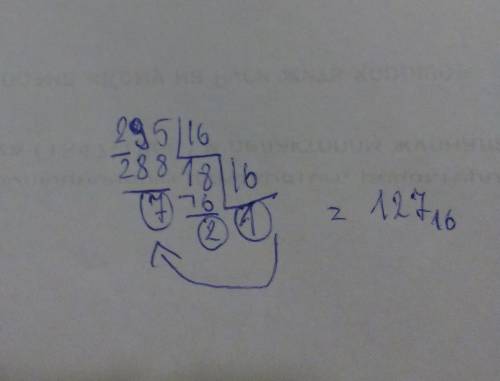 295 | 16
288 18 | 16
7 16 1
2
= 127₁₆